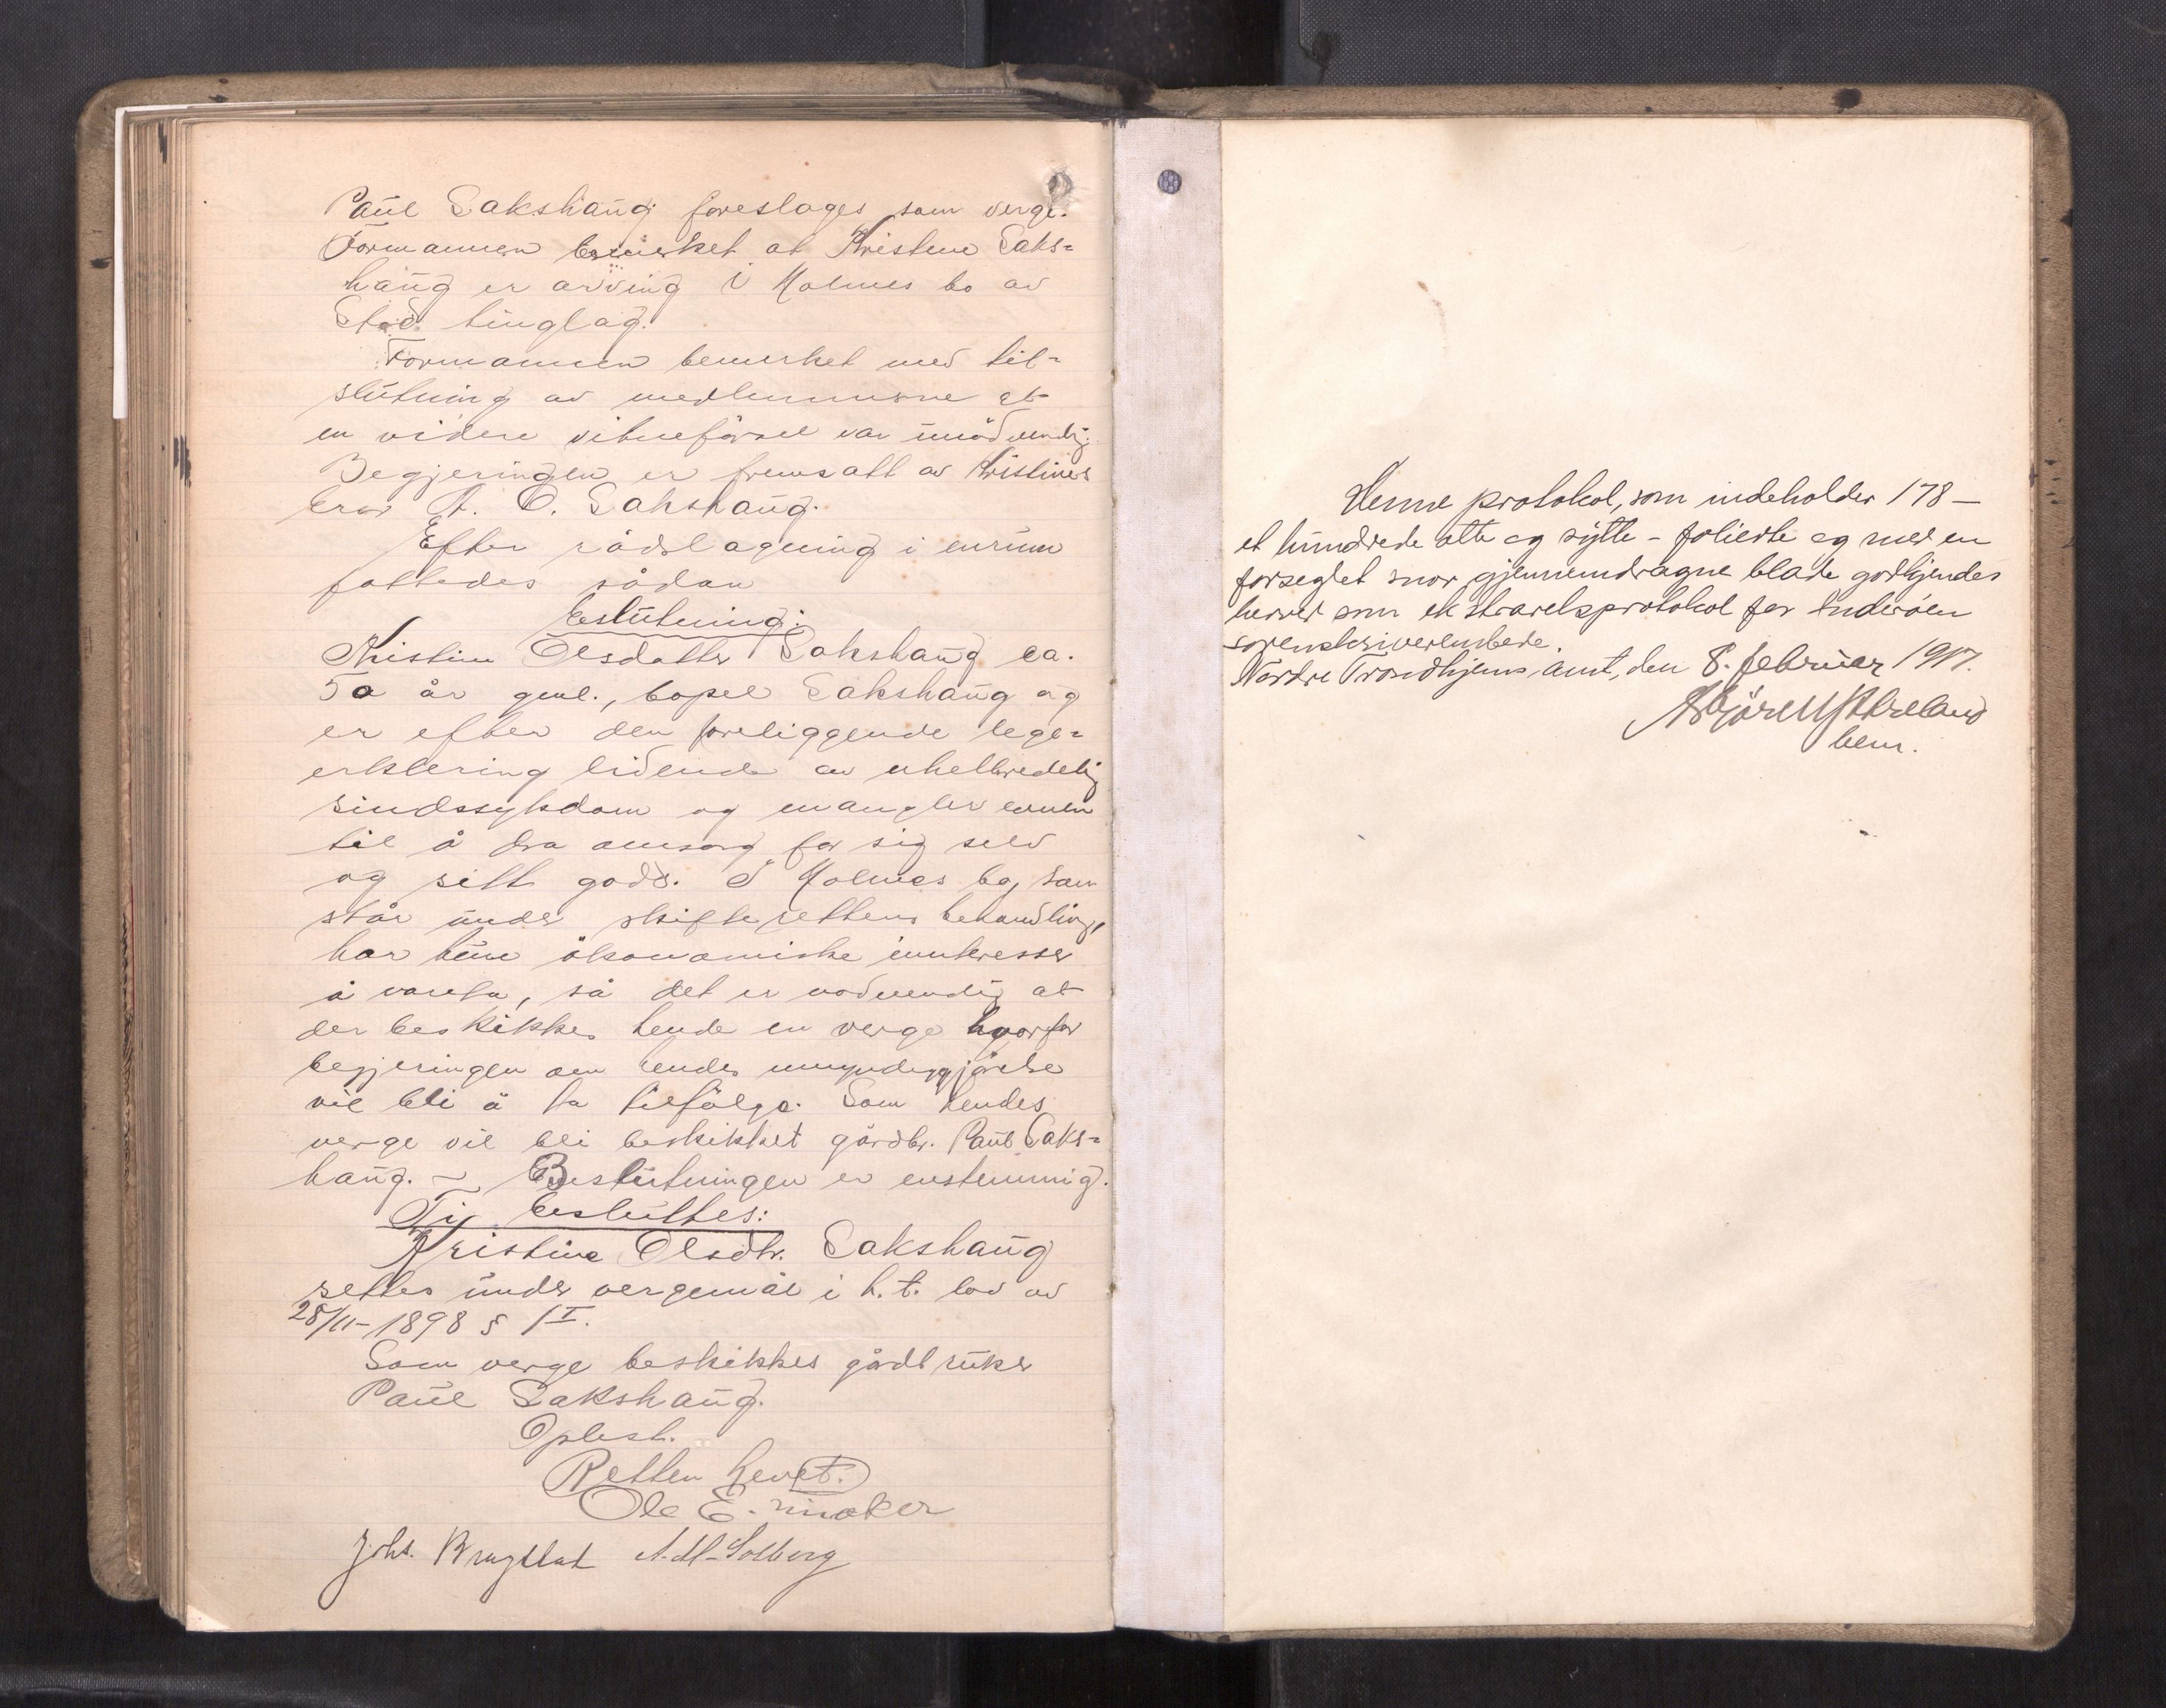 Paul Sakshaug foreslages som verge.
Formannen bemerket at Kristine Saks-
haug er arving i Holmes bo av
Stod tinglag.
Formannen bemerket med til-
slutning av medlemmerne at
en videre vitneførsel var unødvendig.
Begjeringen er fremsatt av Kristines
bror A. O. Sakshaug.
Efter rådslagning i enrum
fattedes sådan
beslutning:
Kristine Olsdatter Sakshaug ca.
50 år geml., bopel Sakshaug og
er efter den foreliggende lege-
erklering lidende av uhelbredelig
sindssykdom og mangler evnen
til å dra omsorg for sig selv
og sitt gods. I Holmes bo, som
står under skifterettens behandling,
har hun økonomiske innteresser
å vareta, så det er nødvendig at
der beskikkes hende en verge hvorfor
begjeringen om hendes umyndiggjørelse
vil bli å ta tilfølge. Som hendes
verge vil bli beskikket gårdbr. Paul Saks-
haug. ~ Beslutningen er enstemmig.
Ti besluttes:
Kristine Olsdtr. Sakshaug
settes under vergemål i h. t. lov av
28/11-1898 § 1 I.
Som verge beskikkes gårdbruker
Paul Sakshaug.
Oplest.
Retten hevet.
Ole E.
Johs. A. M. Solberg
Denne protokol, som indeholder 178 –
et hundrede otte og sytti – folierte og med en
forseglet snor gjennemdragne blade godkjendes
herved som ekstraretsprotokol for Inderøen
sorenskriverembede.
Nordre Trondhjems amt, den 8. februar 1917.